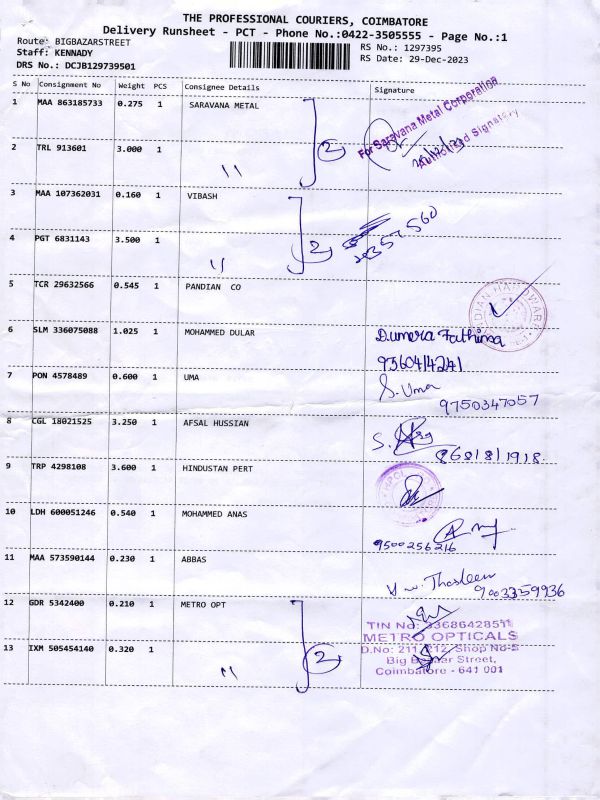 THE PROFESSIONAL COURIERS, COIMBATORE
Delivery Runsheet - PCT - Phone No.:0422-3505555 - Page No.:1
Route: BIGBAZARSTREET
Staff: KENNADY
DRS No.: DCJB129739501
RS No.: 1297395
RS Date: 29-Dec-2023
S No Consignment No Weight PCS Consignee Details Signature
1 MAA 863185733 0.275 1 SARAVANA METAL
For Saravana Metal Corporation
Authorised Signatory
2 TRL 913601 3.000 1 11
2
3 MAA 107362031 0.160 1 VIBASH
4 PGT 6831143 3.500 1 11
2
5 TCR 29632566 0.545 1 PANDIAN CO
6 SLM 336075088 1.025 1 MOHAMMED DULAR
Dumera Fathima
9360414241
7 PON 4578489 0.600 1 UMA
S. Uma
9750347057
8 CGL 18021525 3.250 1 AFSAL HUSSIAN
S.
868181918
9 TRP 4298108 3.600 1 HINDUSTAN PERT
10 LDH 600051246 0.540 1 MOHAMMED ANAS
9500256216
11 MAA 573590144 0.230 1 ABBAS
Thasleem
9003359936
12 GDR 5342400 0.210 1 METRO OPT
TIN No: 33686428511
METRO OPTICALS
13 IXM 505454140 0.320 1 11
2
D.No: 211, 212, Shop No-5
Big Bazaar Street,
Coimbatore - 641 001